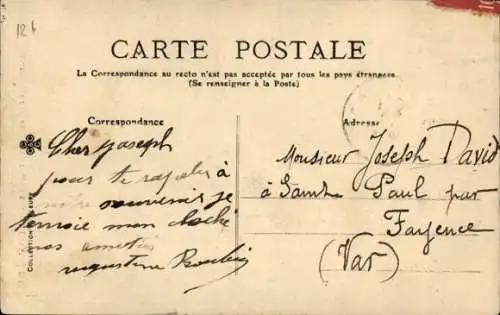 12 b
CARTE POSTALE
La Correspondance au recto n'est pas acceptée par tous les pays étrangers
(Se renseigner à la Poste)
Correspondance
Adresse
Cher Joseph
pour te rapeler à
souvenir je
t'envoie mon cloché
Monsieur Joseph David
à Saint Paul par
Fayence
(Var)
COLLECTION